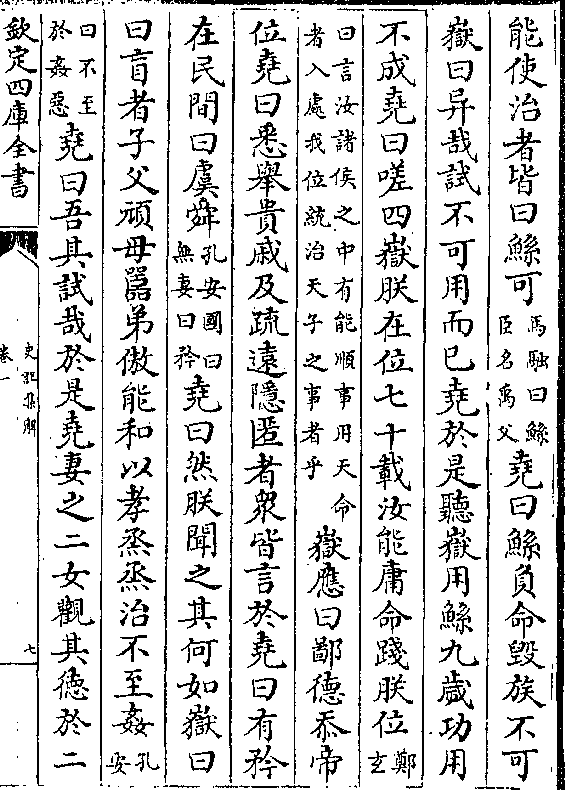 能使治者皆曰鯀可馬融曰鯀臣名禹父堯曰鯀負命毀族不可
嶽曰异哉試不可用而已堯於是聽嶽用鯀九歲功用
不成堯曰嗟四嶽朕在位七十載汝能庸命踐朕位鄭玄
曰言汝諸侯之中有能順事用天命者入處我位統治天子之事者乎嶽應曰鄙德忝帝
位堯曰悉舉貴戚及疏遠隱匿者衆皆言於堯曰有矜
在民間曰虞舜孔安國曰無妻曰矜堯曰然朕聞之其何如嶽曰
盲者子父頑母嚚弟傲能和以孝烝烝治不至姦孔安
曰不至於姦惡堯曰吾其試哉於是堯妻之二女觀其德於二
欽定四庫全書
史記集解
卷一
七